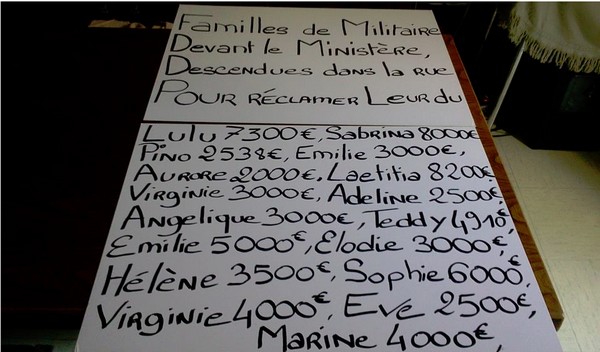 Familles de Militaire
Devant le Ministère,
Descendues dans la rue
Pour réclamer Leur du
Lulu 7300€, Sabrina 8000€
Pino 2538€, Emilie 3000€,
Aurore 2000€, Laetitia 8200€,
Virginie 3000€, Adeline 2500€,
Angelique 3000€, Teddy 4910€,
Emilie 5000€, Elodie 3000€,
Hélène 3500€, Sophie 6000€,
Virginie 4000€, Eve 2500€,
Marine 4000€,